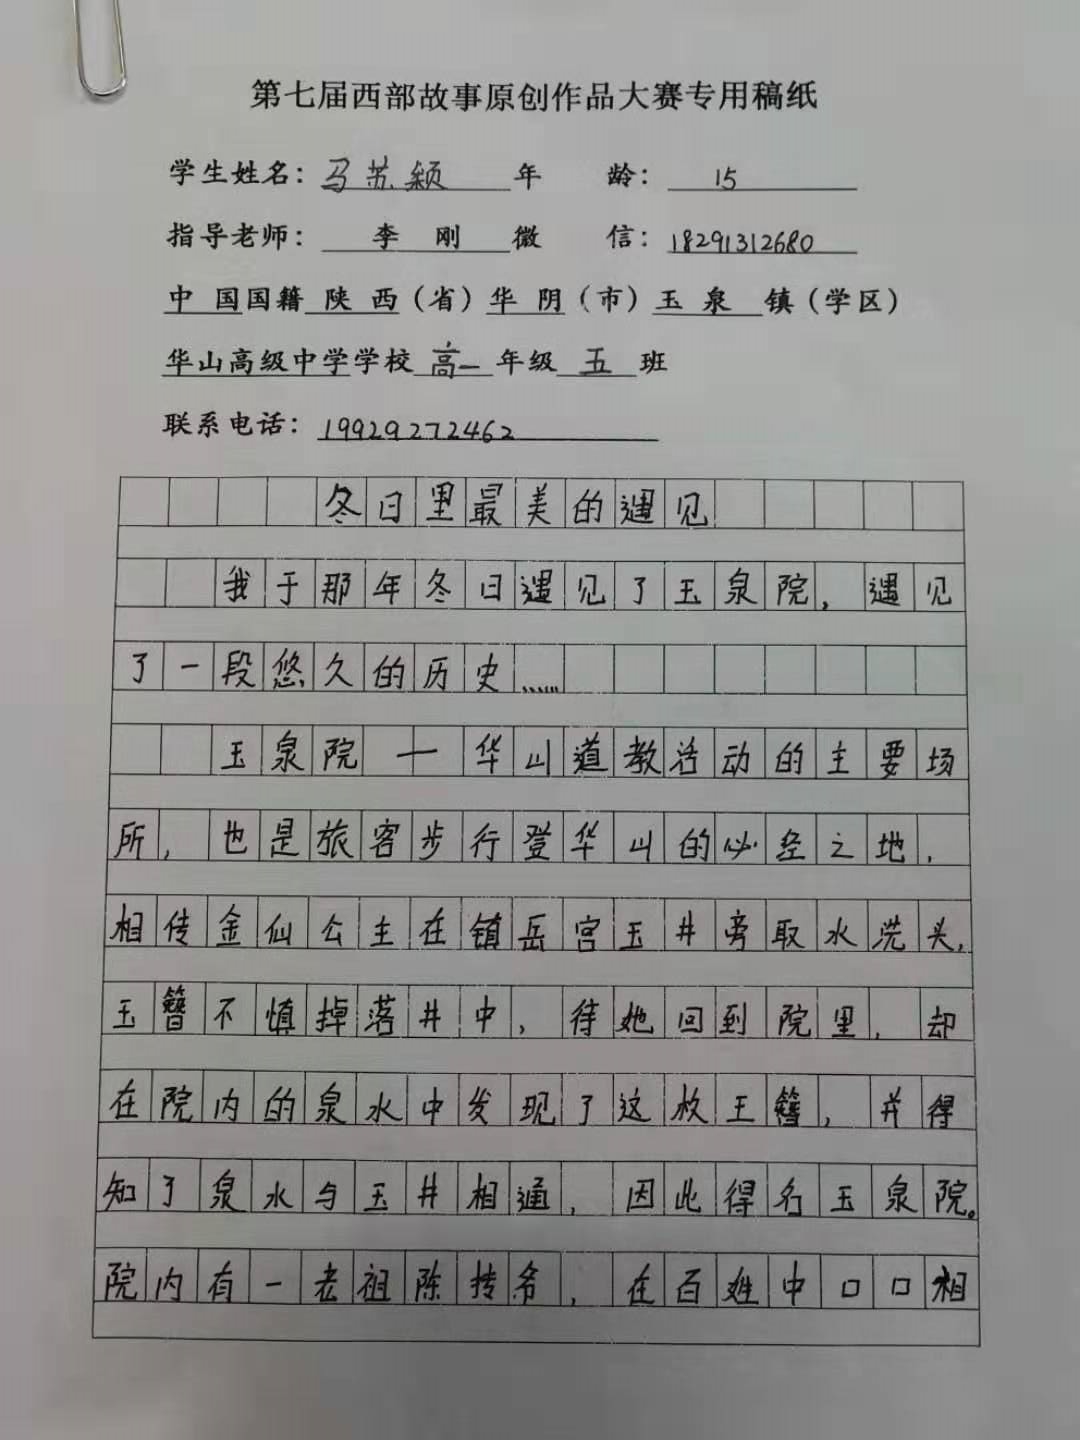 第七届西部故事原创作品大赛专用稿纸
学生姓名：马苏颖 年 龄：15
指导老师：李 刚 微 信：18291312680
中 国国籍 陕 西（省）华 阴（市）玉 泉 镇（学区）
华山高级中学学校 高一 年级 五 班
联系电话：19929272462
冬日里最美的遇见
我于那年冬日遇见了玉泉院，遇见
了一段悠久的历史……
玉泉院一华山道教活动的主要场
所，也是旅客步行登华山的必经之地，
相传金仙公主在镇岳宫玉井旁取水洗头，
玉簪不慎掉落井中，待她回到院里，却
在院内的泉水中发现了这枚玉簪，并得
知了泉水与玉井相通，因此得名玉泉院。
院内有一老祖陈抟爷，在百姓中口口相